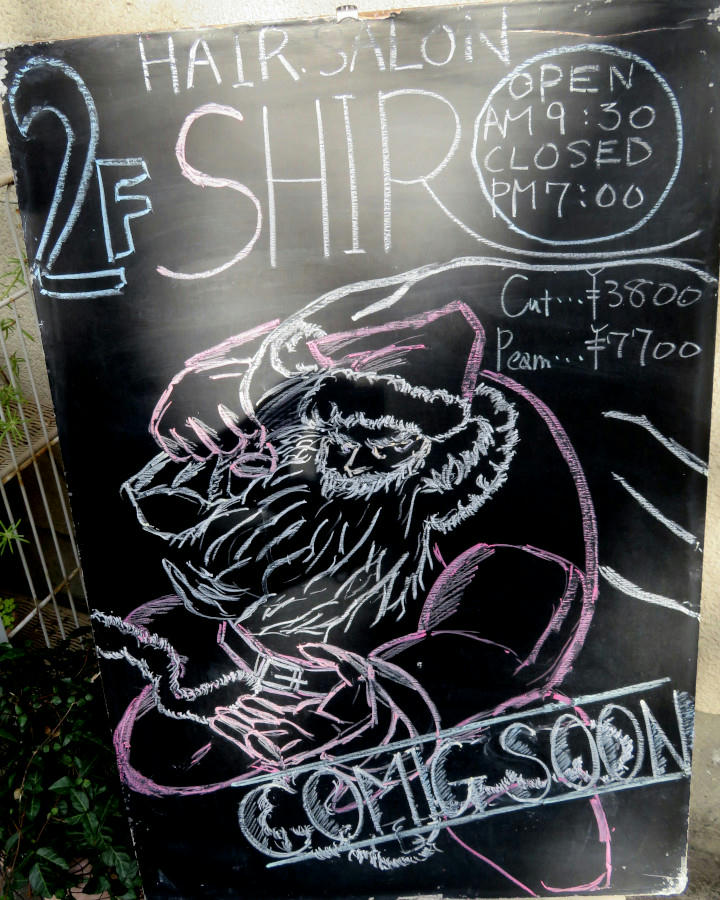 HAIR. SALON
2F
SHIR
OPEN
AM 9:30
CLOSED
PM 7:00
Cut...¥3800
Peam...¥7700
COMIG SOON